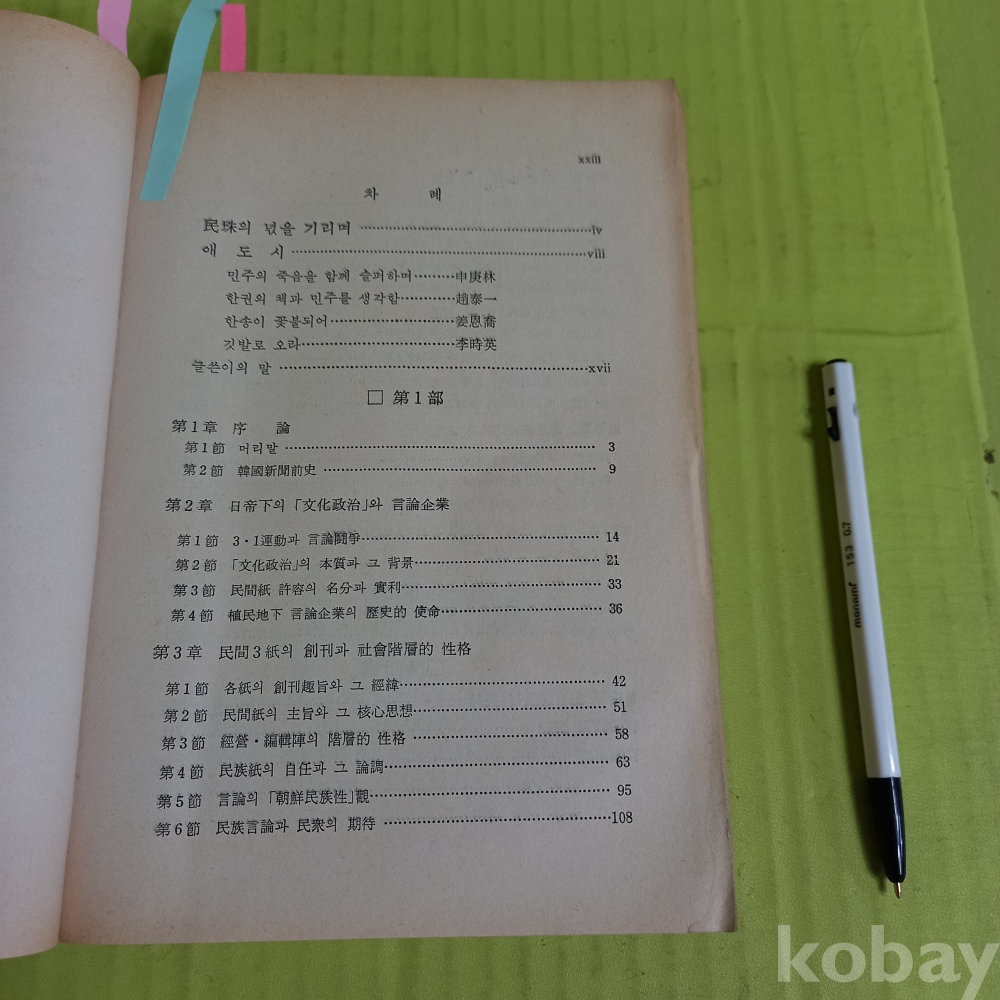 xxiii
차 례
民珠의 넋을 기리며 ……… iv
애 도 시 ……… viii
민주의 죽음을 함께 슬퍼하며 ……… 申庚林
한권의 책과 민주를 생각함 ……… 趙泰一
한송이 꽃불되어 ……… 姜恩喬
깃발로 오라 ……… 李時英
글쓴이의 말 ……… xvii
□ 第1部
第1章 序 論
第1節 머리말 ……… 3
第2節 韓國新聞前史 ……… 9
第2章 日帝下의 「文化政治」와 言論企業
第1節 3·1運動과 言論鬪爭 ……… 14
第2節 「文化政治」의 本質과 그 背景 ……… 21
第3節 民間紙 許容의 名分과 實利 ……… 33
第4節 植民地下 言論企業의 歷史的 使命 ……… 36
第3章 民間3紙의 創刊과 社會階層的 性格
第1節 各紙의 創刊趣旨와 그 經緯 ……… 42
第2節 民間紙의 主旨와 그 核心思想 ……… 51
第3節 經營·編輯陣의 階層的 性格 ……… 58
第4節 民族紙의 自任과 그 論調 ……… 63
第5節 言論의 「朝鮮民族性」觀 ……… 95
第6節 民族言論과 民衆의 期待 ……… 108
monami 153 0.7
kobay